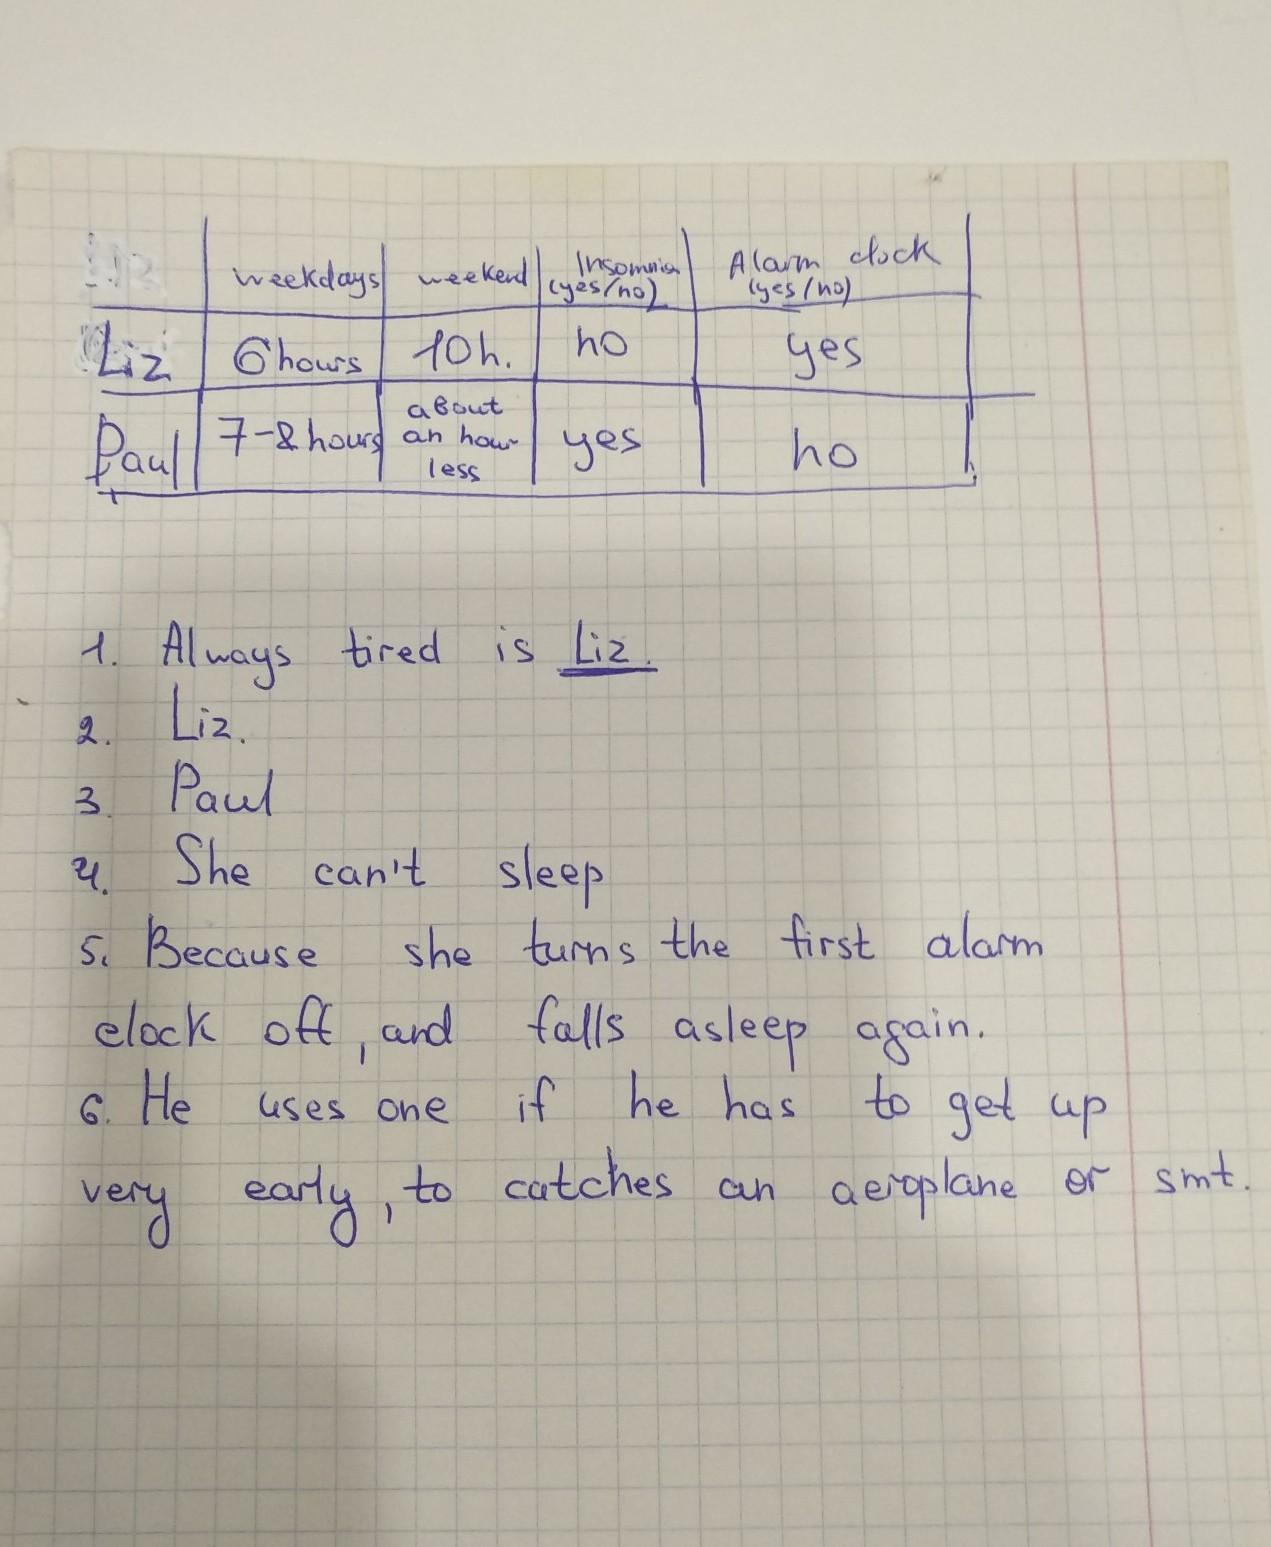 weekdays weekend Insomnia (yes/no) Alarm clock (yes/no)
Liz 6hours 10h. no yes
Paul 7-8hours about an hour less yes no
1. Always tired is Liz.
2. Liz.
3. Paul
4. She can't sleep
5. Because she turns the first alarm
clock off, and falls asleep again.
6. He uses one if he has to get up
very early, to catches an aeroplane or smt.